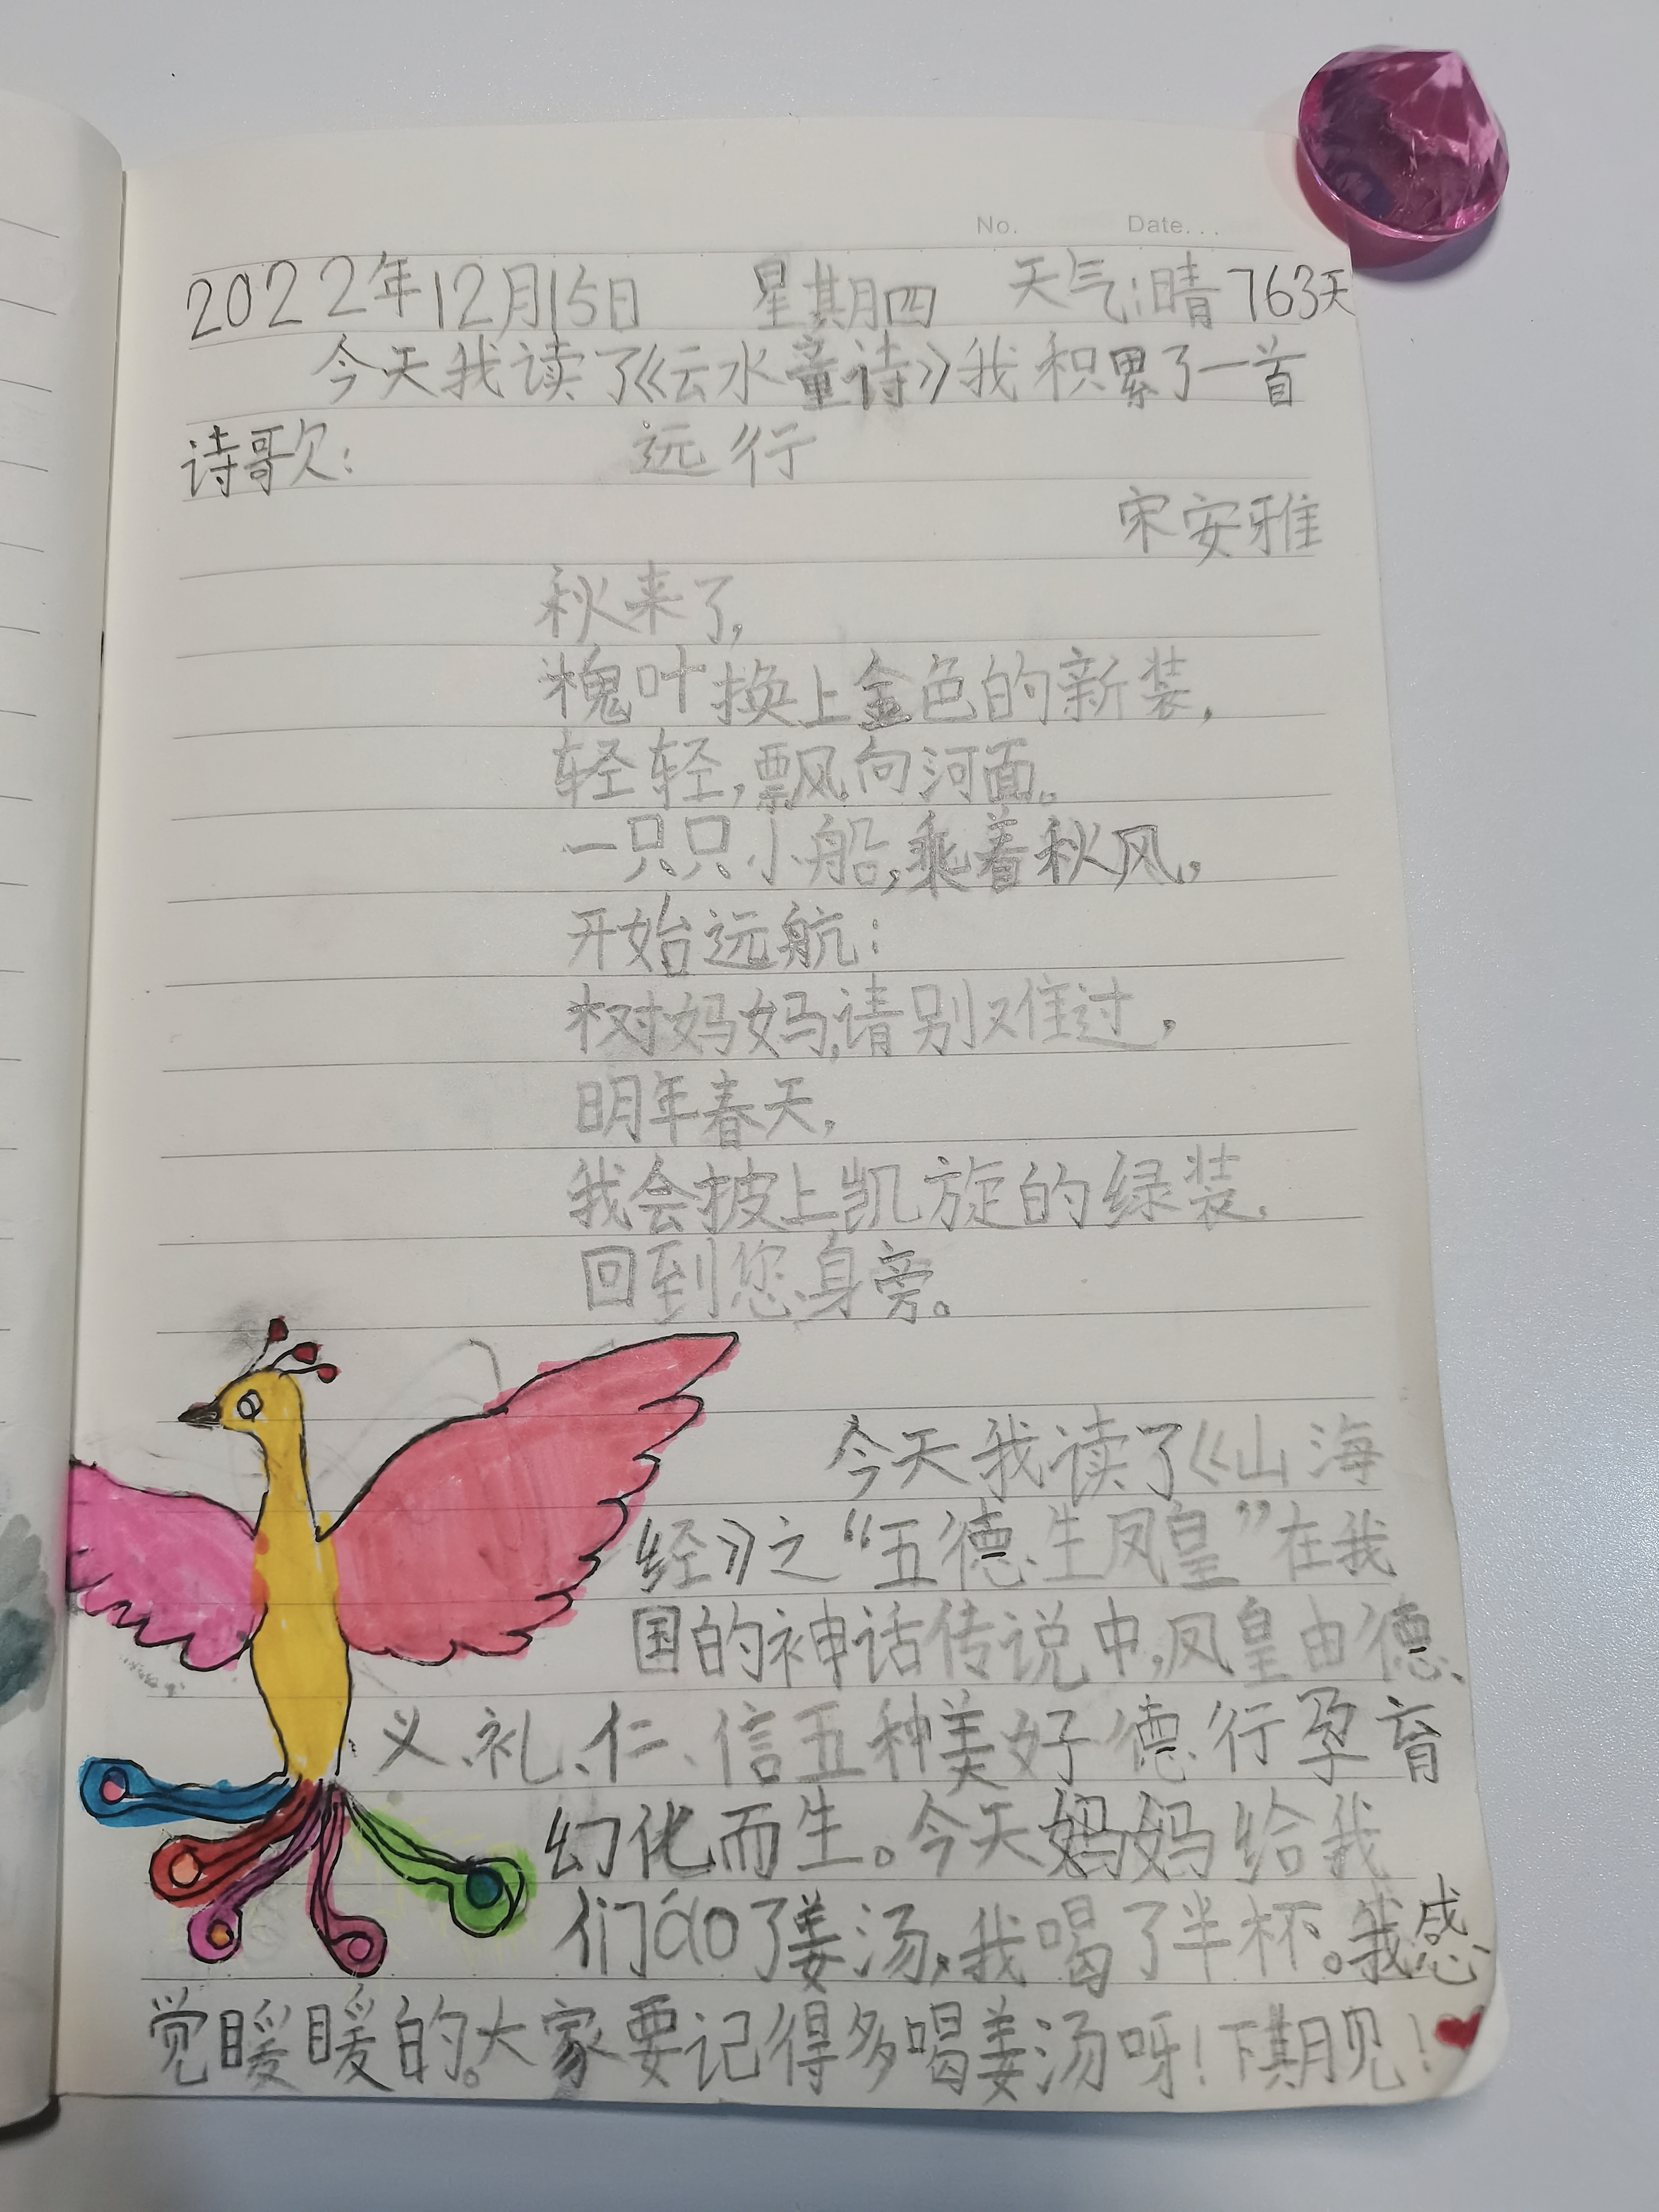 No. Date...
2022年12月15日 星期四 天气:晴 763天
今天我读了《云水童诗》我积累了一首
诗歌: 远行
宋安雅
秋来了,
槐叶换上金色的新装,
轻轻,飘向河面。
一只只小船,乘着秋风,
开始远航:
树妈妈,请别难过,
明年春天,
我会披上凯旋的绿装,
回到您身旁。
今天我读了《山海
经》之“五德生凤皇”在我
国的神话传说中,凤皇由德、
义、礼、仁、信五种美好德行孕育
幻化而生。今天妈妈给我
们áo了姜汤,我喝了半杯。我感
觉暖暖的。大家要记得多喝姜汤呀!下期见!